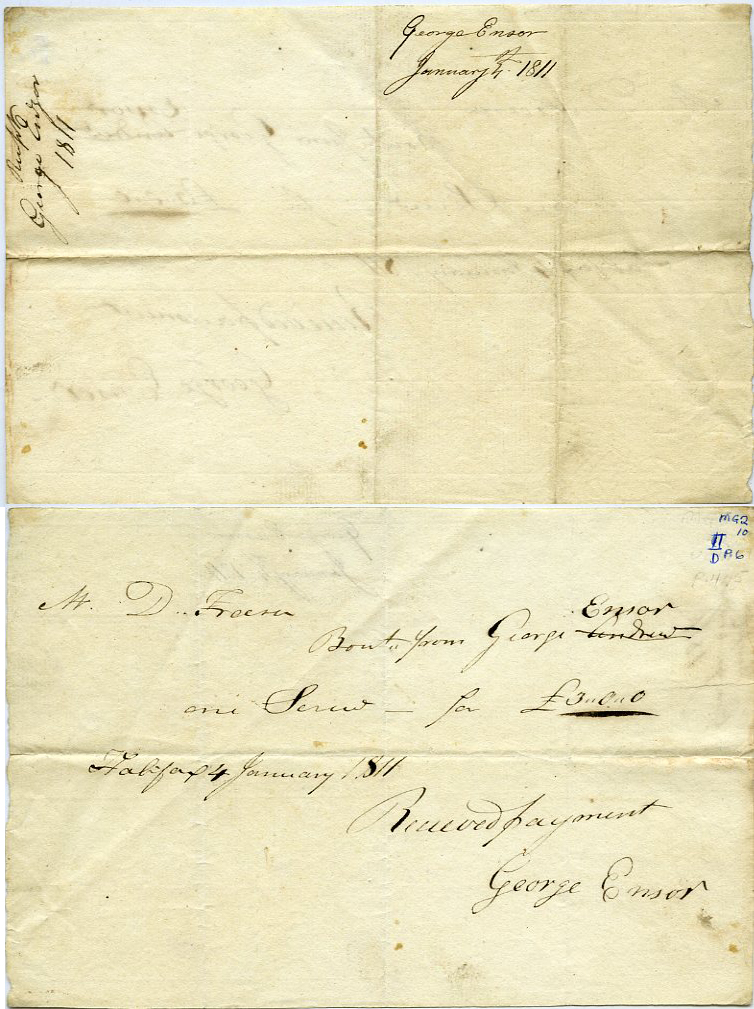 George Ensor
January 4th 1811
George Ensor
1811
MG2
10
II
D
Mr. D. Fraser
Ensor
Bout from George Andrew
one Screw — for £3"0"0
Halifax 4 January 1811
Received payment
George Ensor